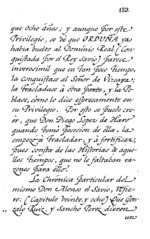 183.
que ocho años; y aunque por este
Privilegio, se vé que ORDUÑA, ya
havia buelto al Dominio Real (Con-
quistada por el Rey Savio) parece
inverosimil que en tan poco tiempo,
la conquistase al Señor de Vizcaya;
la trasladase á otra parte, y la Po-
blase, como lo dice espresamente en
su Privilegio. Por esto se puede cre-
ìr, que Don Diego Lopez de Haro
quando tomó passion de ella, la
empezó á trasladar, y á fortificar;
pues consta de las Historias de aque-
llos tiempos, que no le faltaban ra-
zones para ello.
La Chronica particular del
mismo Don Alonso el Savio, refie-
re (Capitulo veinte, y ocho) Que Gon-
zalo Ruiz, y Sancho Perez dieron